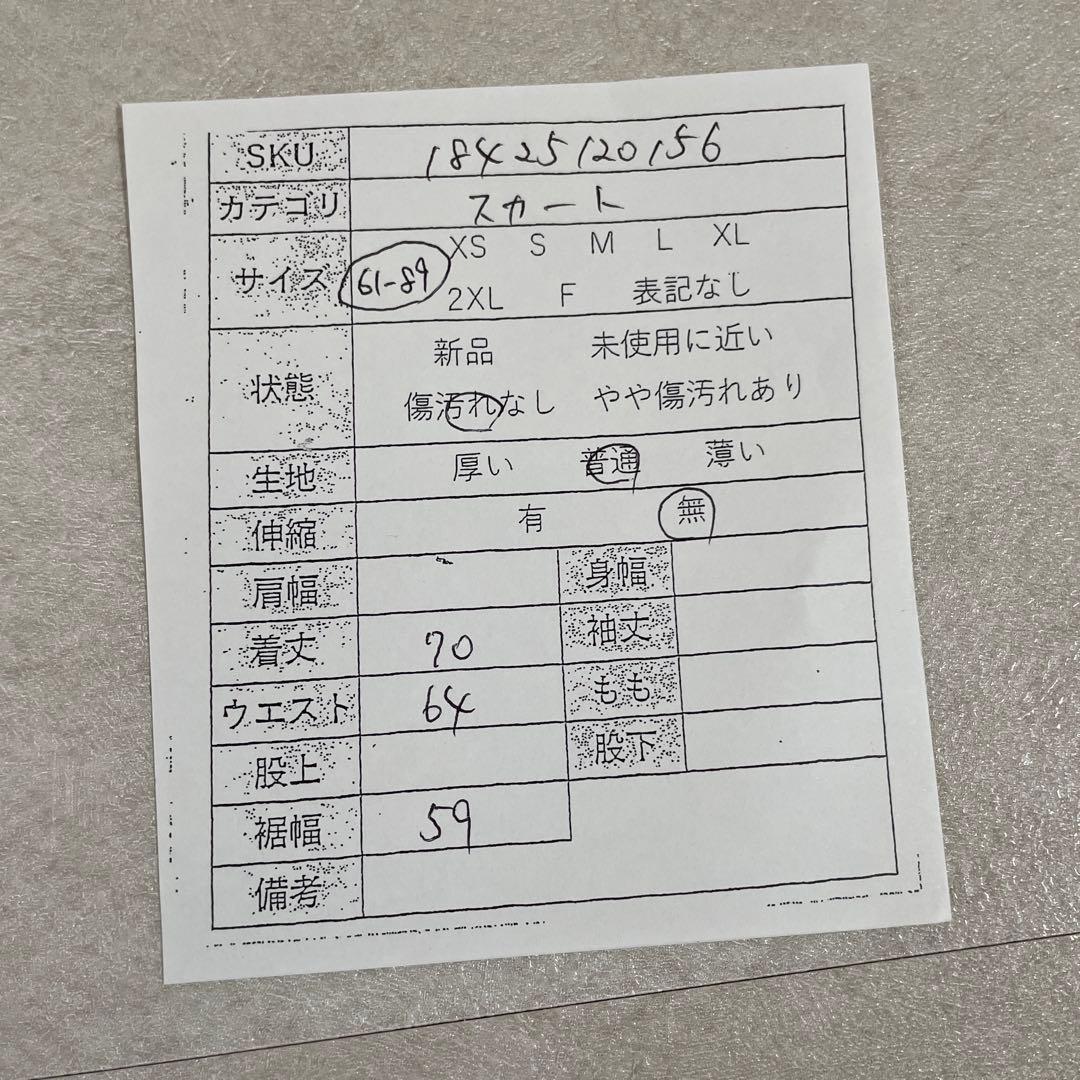 SKU 18425120156
カテゴリ スカート
サイズ 61-89 XS S M L XL
2XL F 表記なし
状態 新品 未使用に近い
傷汚れなし やや傷汚れあり
生地 厚い 普通 薄い
伸縮 有 無
肩幅 身幅
着丈 70 袖丈
ウエスト 64 もも
股上 股下
裾幅 59
備考